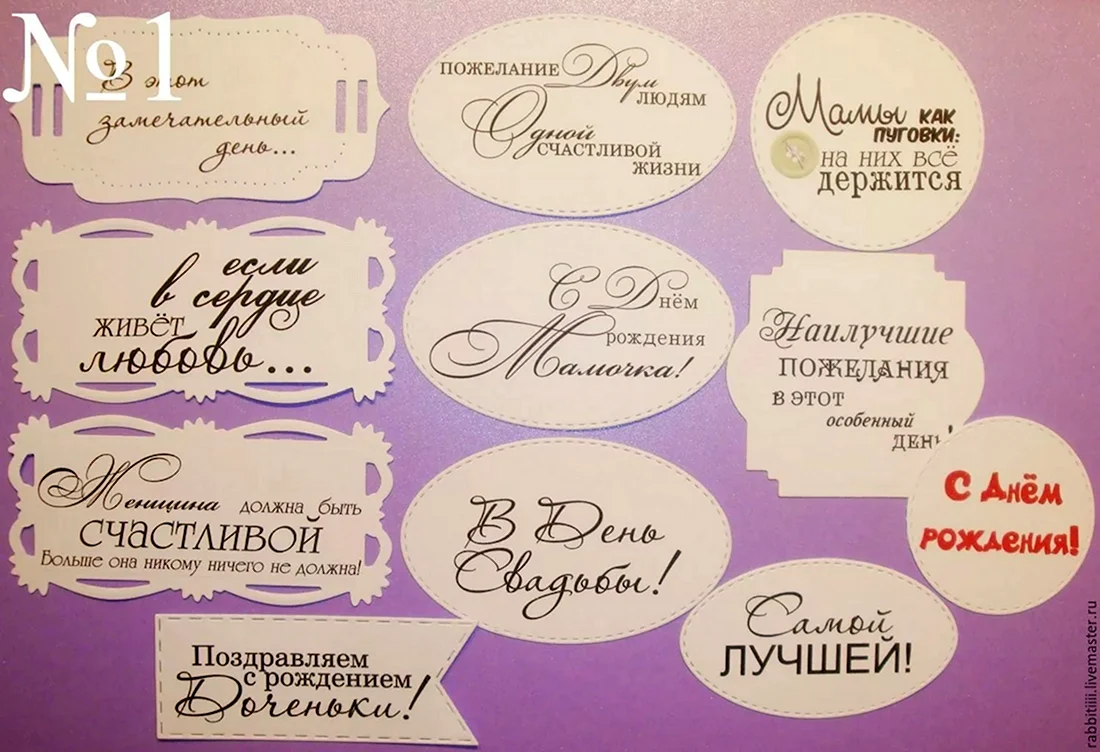 №1
В этот
замечательный
день...
ПОЖЕЛАНИЕ Двум
ЛЮДЯМ
Одной
СЧАСТЛИВОЙ
ЖИЗНИ
Мамы КАК
ПУГОВКИ:
на них всё
держится
если
в сердце
живёт
любовь...
С Днём
рождения
Мамочка!
Наилучшие
ПОЖЕЛАНИЯ
В ЭТОТ
особенный
ДЕНЬ!
Женщина должна быть
СЧАСТЛИВОЙ
Больше она никому ничего не должна!
В День
Свадьбы!
С Днём
рождения!
Самой
ЛУЧШЕЙ!
Поздравляем
с рождением
Доченьки!
rabbitiiii.livemaster.ru